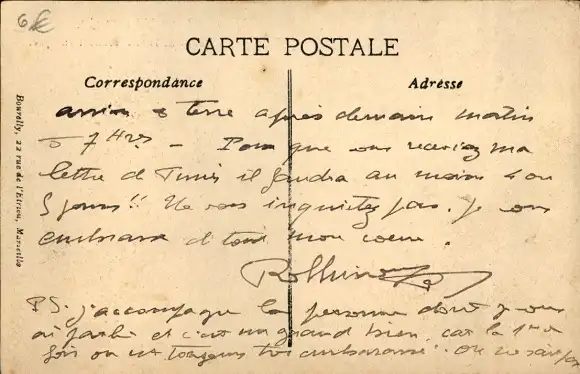 6 €
CARTE POSTALE
Correspondance
Adresse
Bourelly, 22 rue de l'Etrieu, Marseille
à terre après demain matin
à 7 Hres — Pour que vous receviez ma
lettre de Tunis il faudra au moins 4 ou
5 jours !! Ne vous inquietez pas. Je vous
embrasse de tout mon coeur.
P.S. j'accompagne la personne dont je vous
ai parlé et c'est un grand bien, car la 1ere
fois on est toujours très embarassé. On ne sait pas